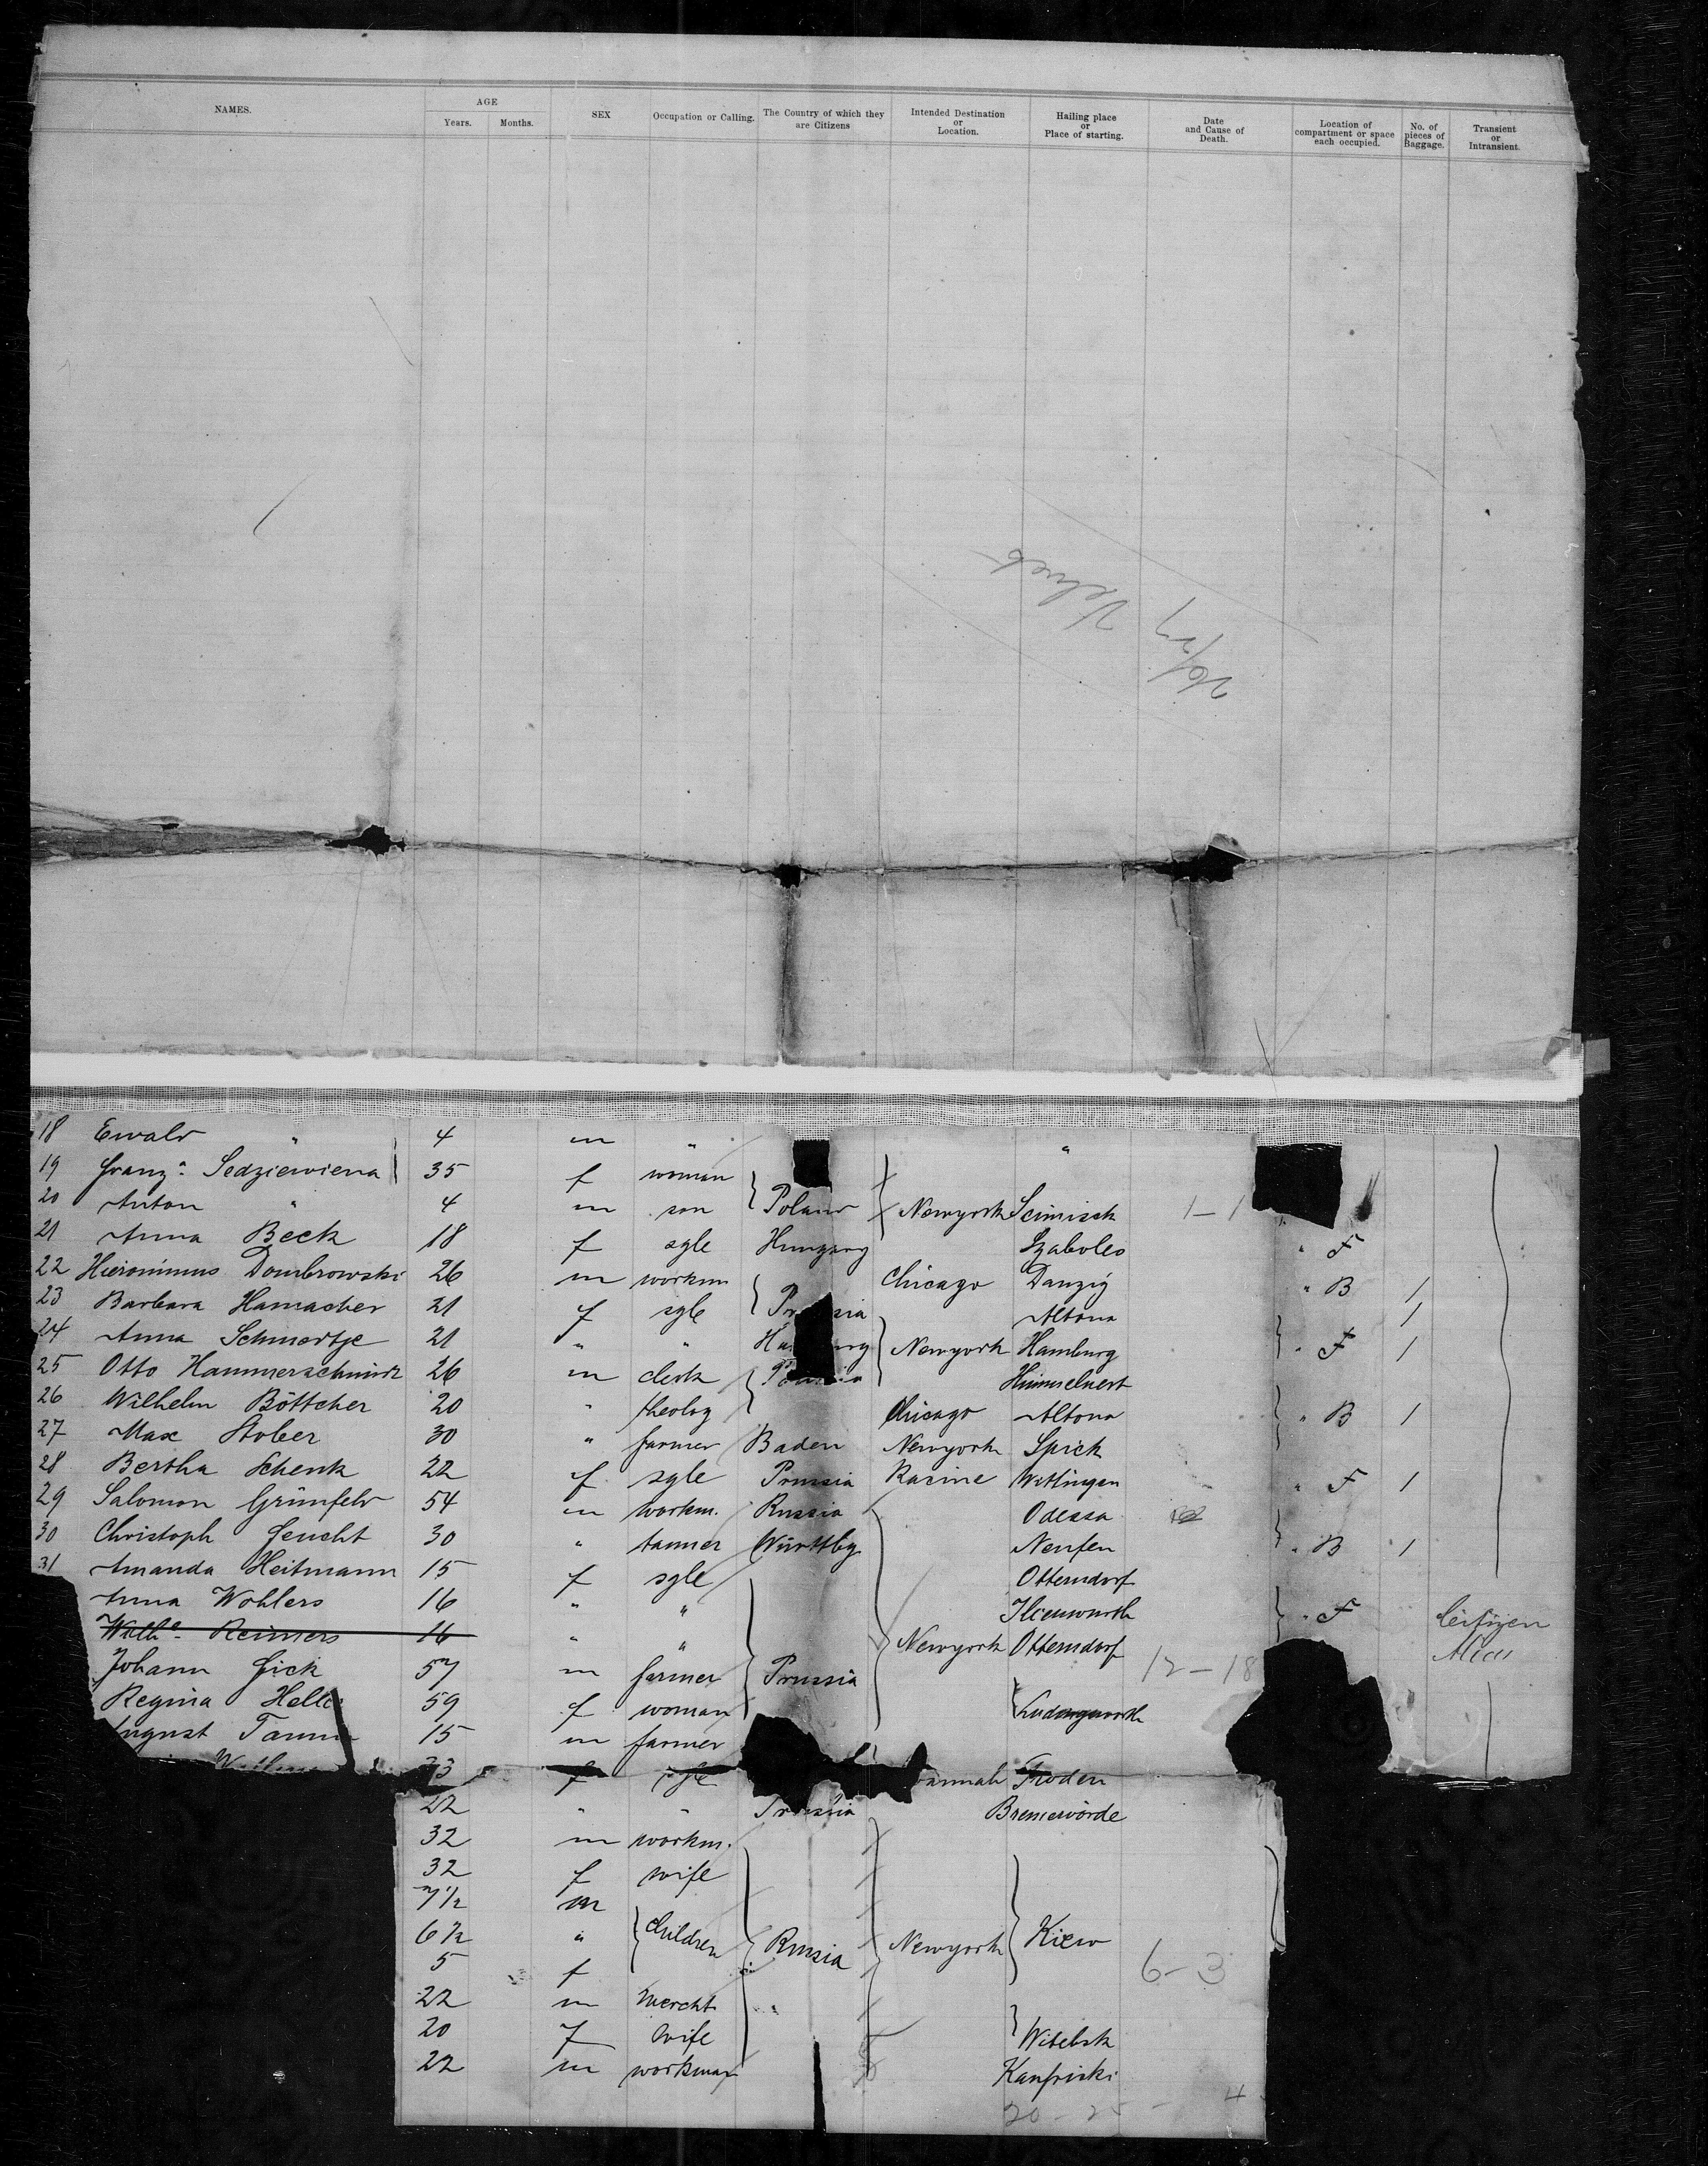 NAMES. AGE SEX Occupation or Calling. The Country of which they are Citizens Intended Destination or Location. Hailing place or Place of starting. Date and Cause of Death. Location of compartment or space each occupied. No. of pieces of Baggage. Transient or Intransient.
Years. Months.
26/27
18 Ewald " 4 m " "
19 Franz.a Sedziewiena 35 f woman
20 Anton " 4 m son Poland Newyork Scimisch 1-1
21 Anna Beck 18 f sgle Hungary Szabolcs " F
22 Hieronimus Dombrowski 26 m workm Chicago Danzig " B 1
23 Barbara Hamacher 21 f sgle Prussia Altona 1
24 Anna Schmertje 21 " " Newyork Hamburg " F 1
25 Otto Hammerschmidt 26 m clerk
26 Wilhelm Böttcher 20 " theolog Chicago Altona " B 1
27 Max Stober 30 " farmer Baden Newyork Spick
28 Bertha Schenk 22 f sgle Prussia Racine Wittingen " F 1
29 Salomon Grünfeld 54 m workm. Russia Odessa
30 Christoph Feucht 30 " tanner Württbg Neufen " B 1
31 Amanda Heitmann 15 f sgle Otterndorf
Anna Wohlers 16 " " Ilienworth " F Citizen
Wilhe Reimers 16 " " Newyork Otterndorf
Johann Fick 57 m farmer Prussia 12-18
Regina 59 f woman Ludingworth
August 15 m farmer
33 f sgle
22 " " Prussia Bremervörde
32 m workm.
32 f wife
7 1/2 m
6 1/2 " children Russia Newyork Kiew
5 f 6-3
22 m mercht "
20 f wife Witebsk
22 m workman
20-25- 4